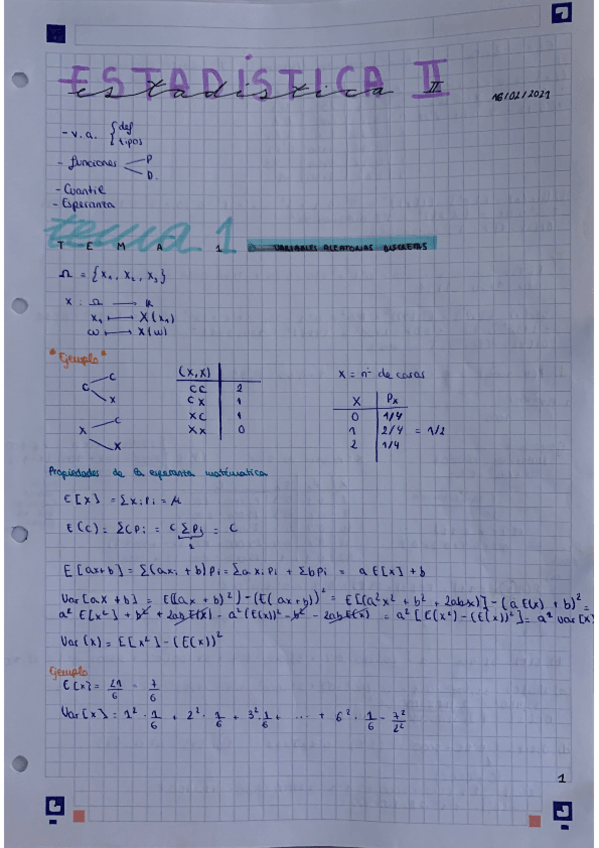 ESTADÍSTICA II
estadística II
16/02/2021
- v.a. { def
tipos
- funciones P
D.
- Cuantil
- Esperanza
tema 1
TEMA 1 VARIABLES ALEATORIAS DISCRETAS
Ω = {x₁, x₂, x₃}
X : Ω → R
x₁ ↦ X(x₁)
ω ↦ X(ω)
"Ejemplo"
C C
X
X C
X
(X,X)
CC 2
CX 1
XC 1
XX 0
X = nº de caras
X Pₓ
0 1/4
1 2/4 = 1/2
2 1/4
Propiedades de la esperanza matemática
E[X] = Σxᵢpᵢ = μ
E(c) = Σcpᵢ = c Σpᵢ = c
1
E[ax+b] = Σ(axᵢ + b)pᵢ = Σaxᵢpᵢ + Σbpᵢ = aE[x] + b
Var[ax + b] = E((ax + b)²) - (E(ax+b))² = E[(a²x² + b² + 2abx)] - (aE(x) + b)² =
a² E[x²] + b² + 2abE(x) - a²(E(x))² - b² - 2abE(x) = a² [E(x²) - (E(x))²] = a² Var[x]
Var(x) = E[x²] - (E(x))²
Ejemplo
E[x] = 21/6 = 7/6
Var[x] = 1² · 1/6 + 2² · 1/6 + 3² · 1/6 + ... + 6² · 1/6 - 7²/2²
1